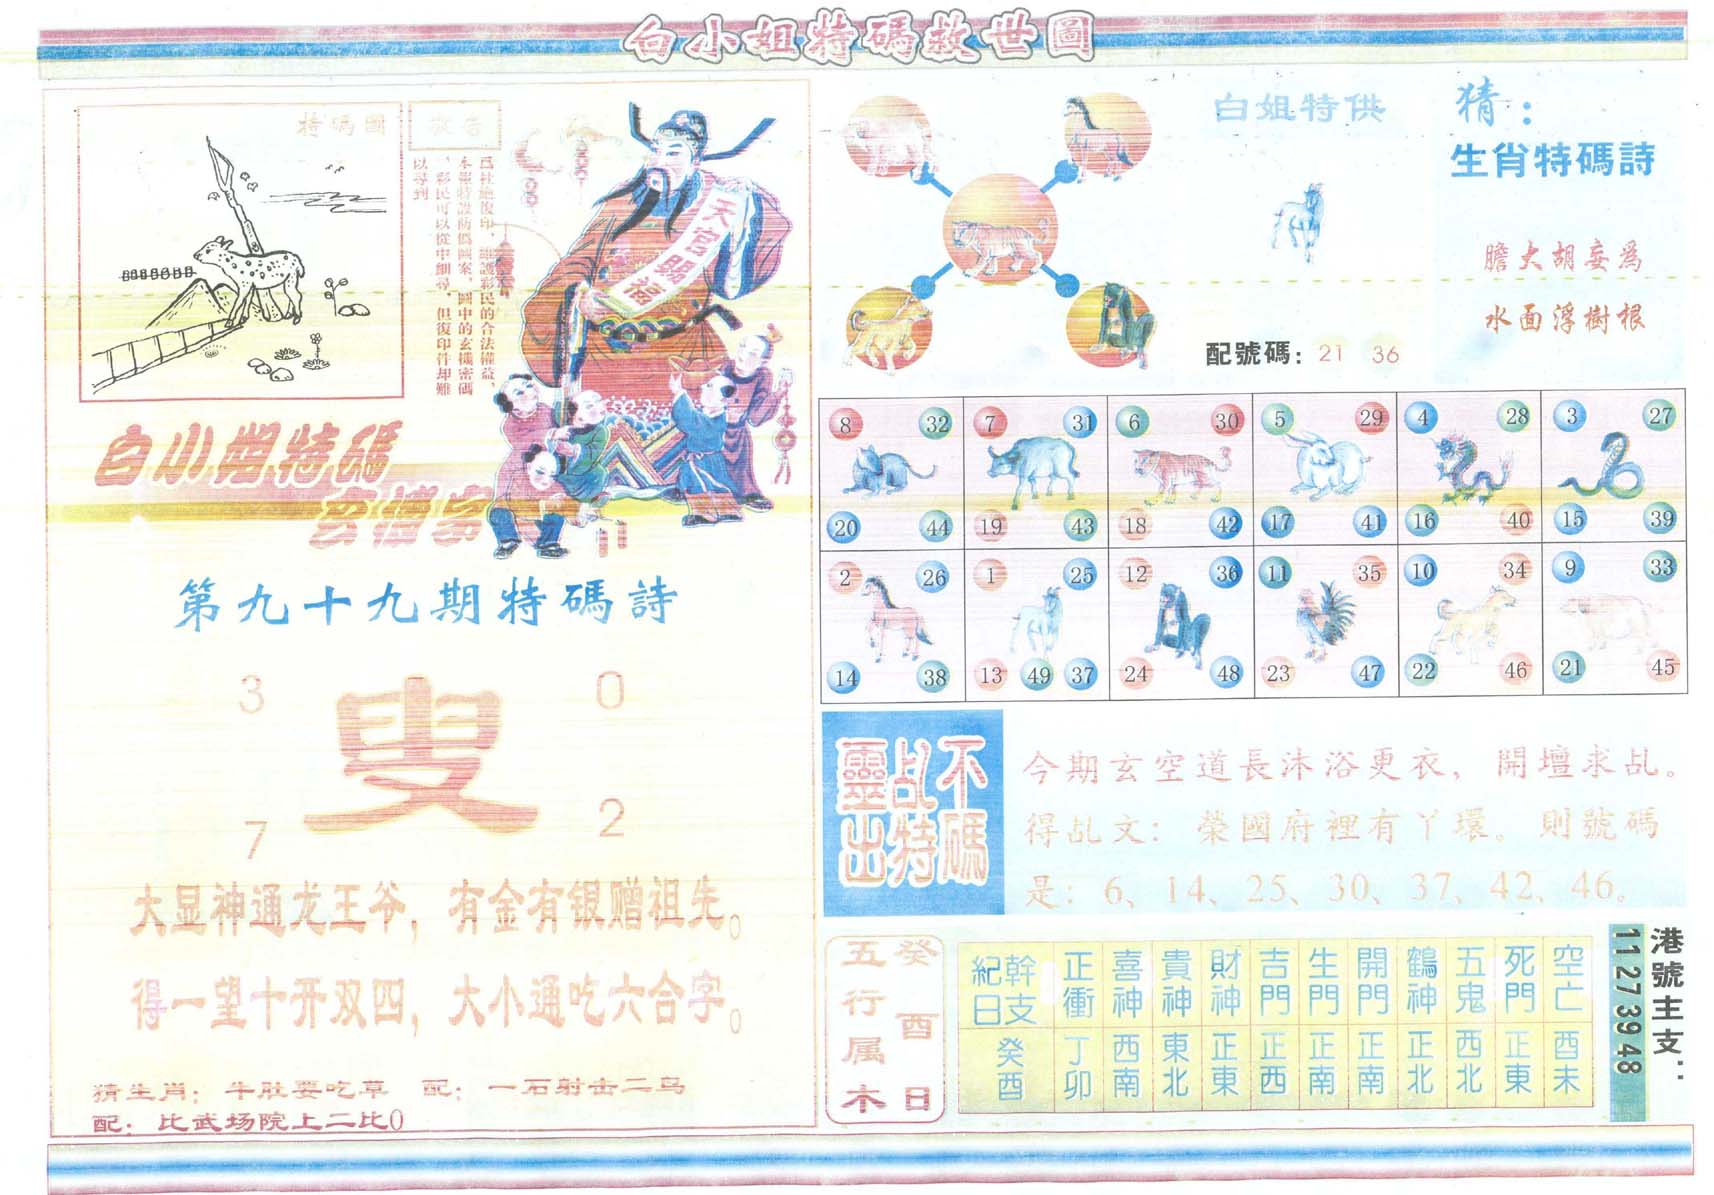 白小姐特碼救世圖
特碼圖
敬告
爲杜絶復印，維護彩民的合法權益，
本報特設防僞圖案，圖中的玄機密碼
，彩民可以從中細尋，但復印件却難
以尋到
天官賜福
白小姐特碼
玄機字
第九十九期特碼詩
3 0
叟
7 2
大显神通龙王爷，有金有银赠祖先。
得一望十开双四，大小通吃六合字。
猜生肖：牛肚要吃草 配：一石射击二鸟
配：比武场院上二比0
白姐特供
配號碼：21 36
猜：
生肖特碼詩
膽大胡妄爲
水面浮樹根
8 32 7 31 6 30 5 29 4 28 3 27
20 44 19 43 18 42 17 41 16 40 15 39
2 26 1 25 12 36 11 35 10 34 9 33
14 38 13 49 37 24 48 23 47 22 46 21 45
不碼
乩特
靈出
今期玄空道長沐浴更衣，開壇求乩。
得乩文：榮國府裡有丫環。則號碼
是：6、14、25、30、37、42、46。
癸酉日
五行属木
紀日幹支 正衝 喜神 貴神 財神 吉門 生門 開門 鶴神 五鬼 死門 空亡
癸酉 丁卯 西南 東北 正東 正西 正南 正南 正北 西北 正東 酉未
港號主支：
11 27 39 48